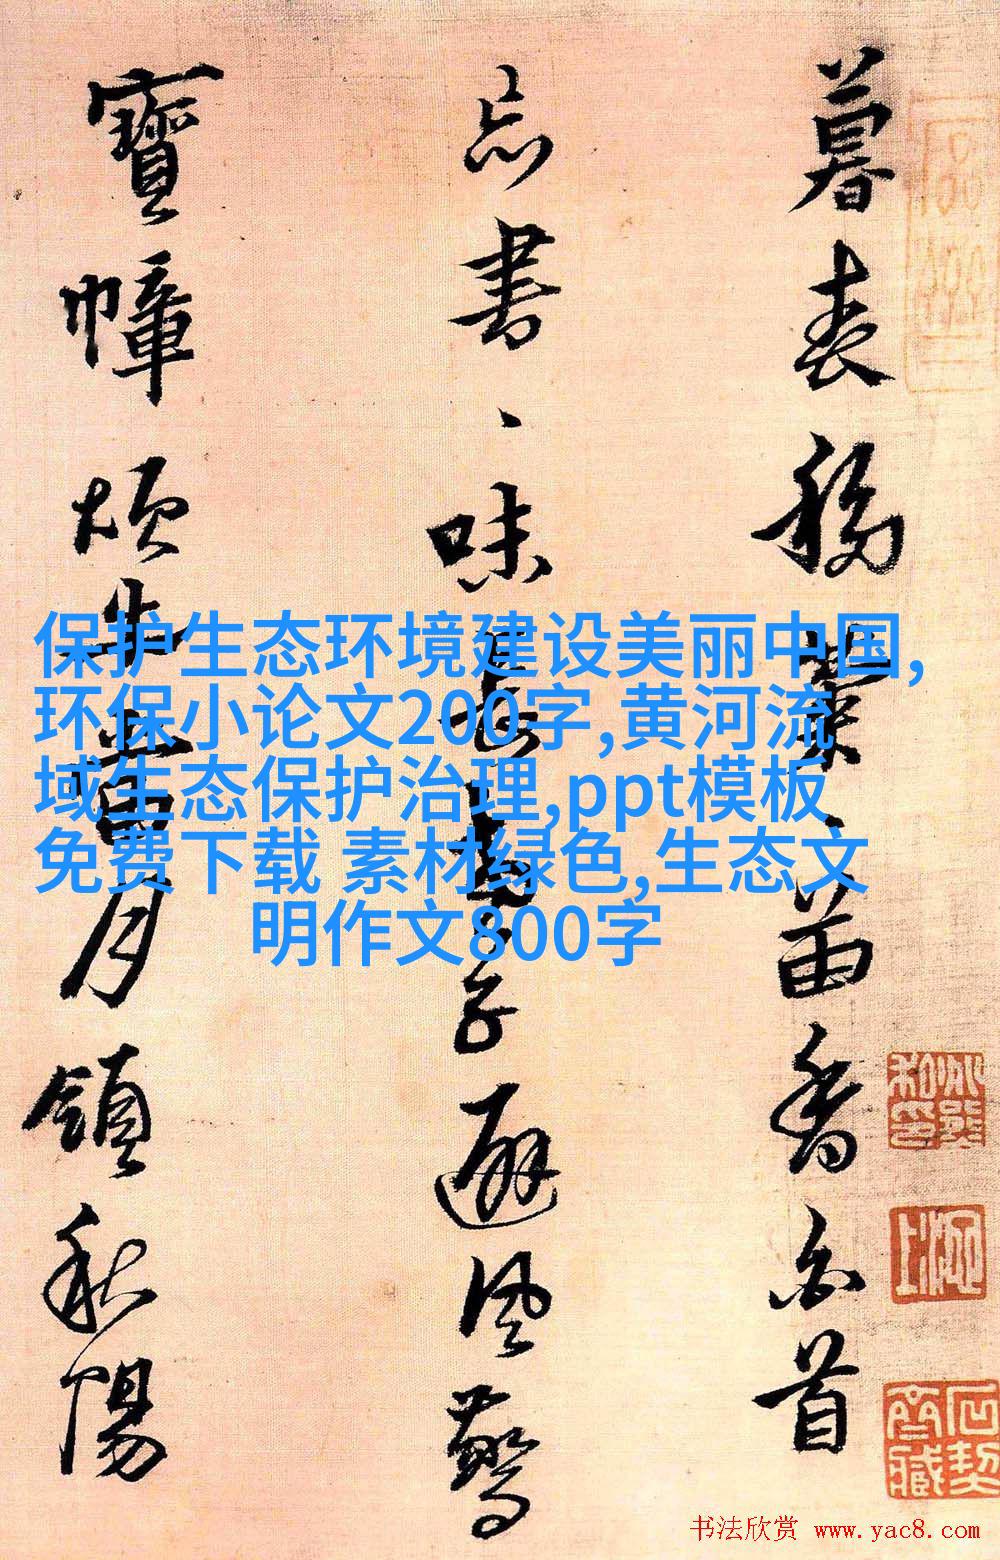 保护生态环境建设美丽中国,
环保小论文200字,黄河流
域生态保护治理,ppt模板
免费下载 素材绿色,生态文
明作文800字
暮春黄、菊香白首
忘書、味長子避風
寶幛頌生月領秋陽
书法欣赏 www.yac8.com